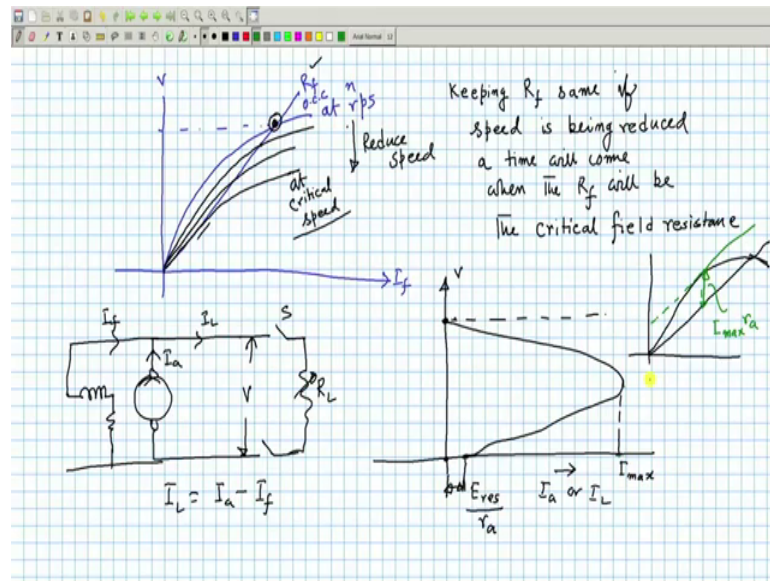 Arial Normal 12
V
R_f
O.C.C n
at rps
Reduce
speed
at
critical
speed
I_f
Keeping R_f same if
speed is being reduced
a time will come
when The R_f will be
The critical field resistance
I_max r_a
I_f
I_L
S
I_a
V
R_L
I_L = I_a - I_f
V
E_res
r_a
I_a or I_L
I_max